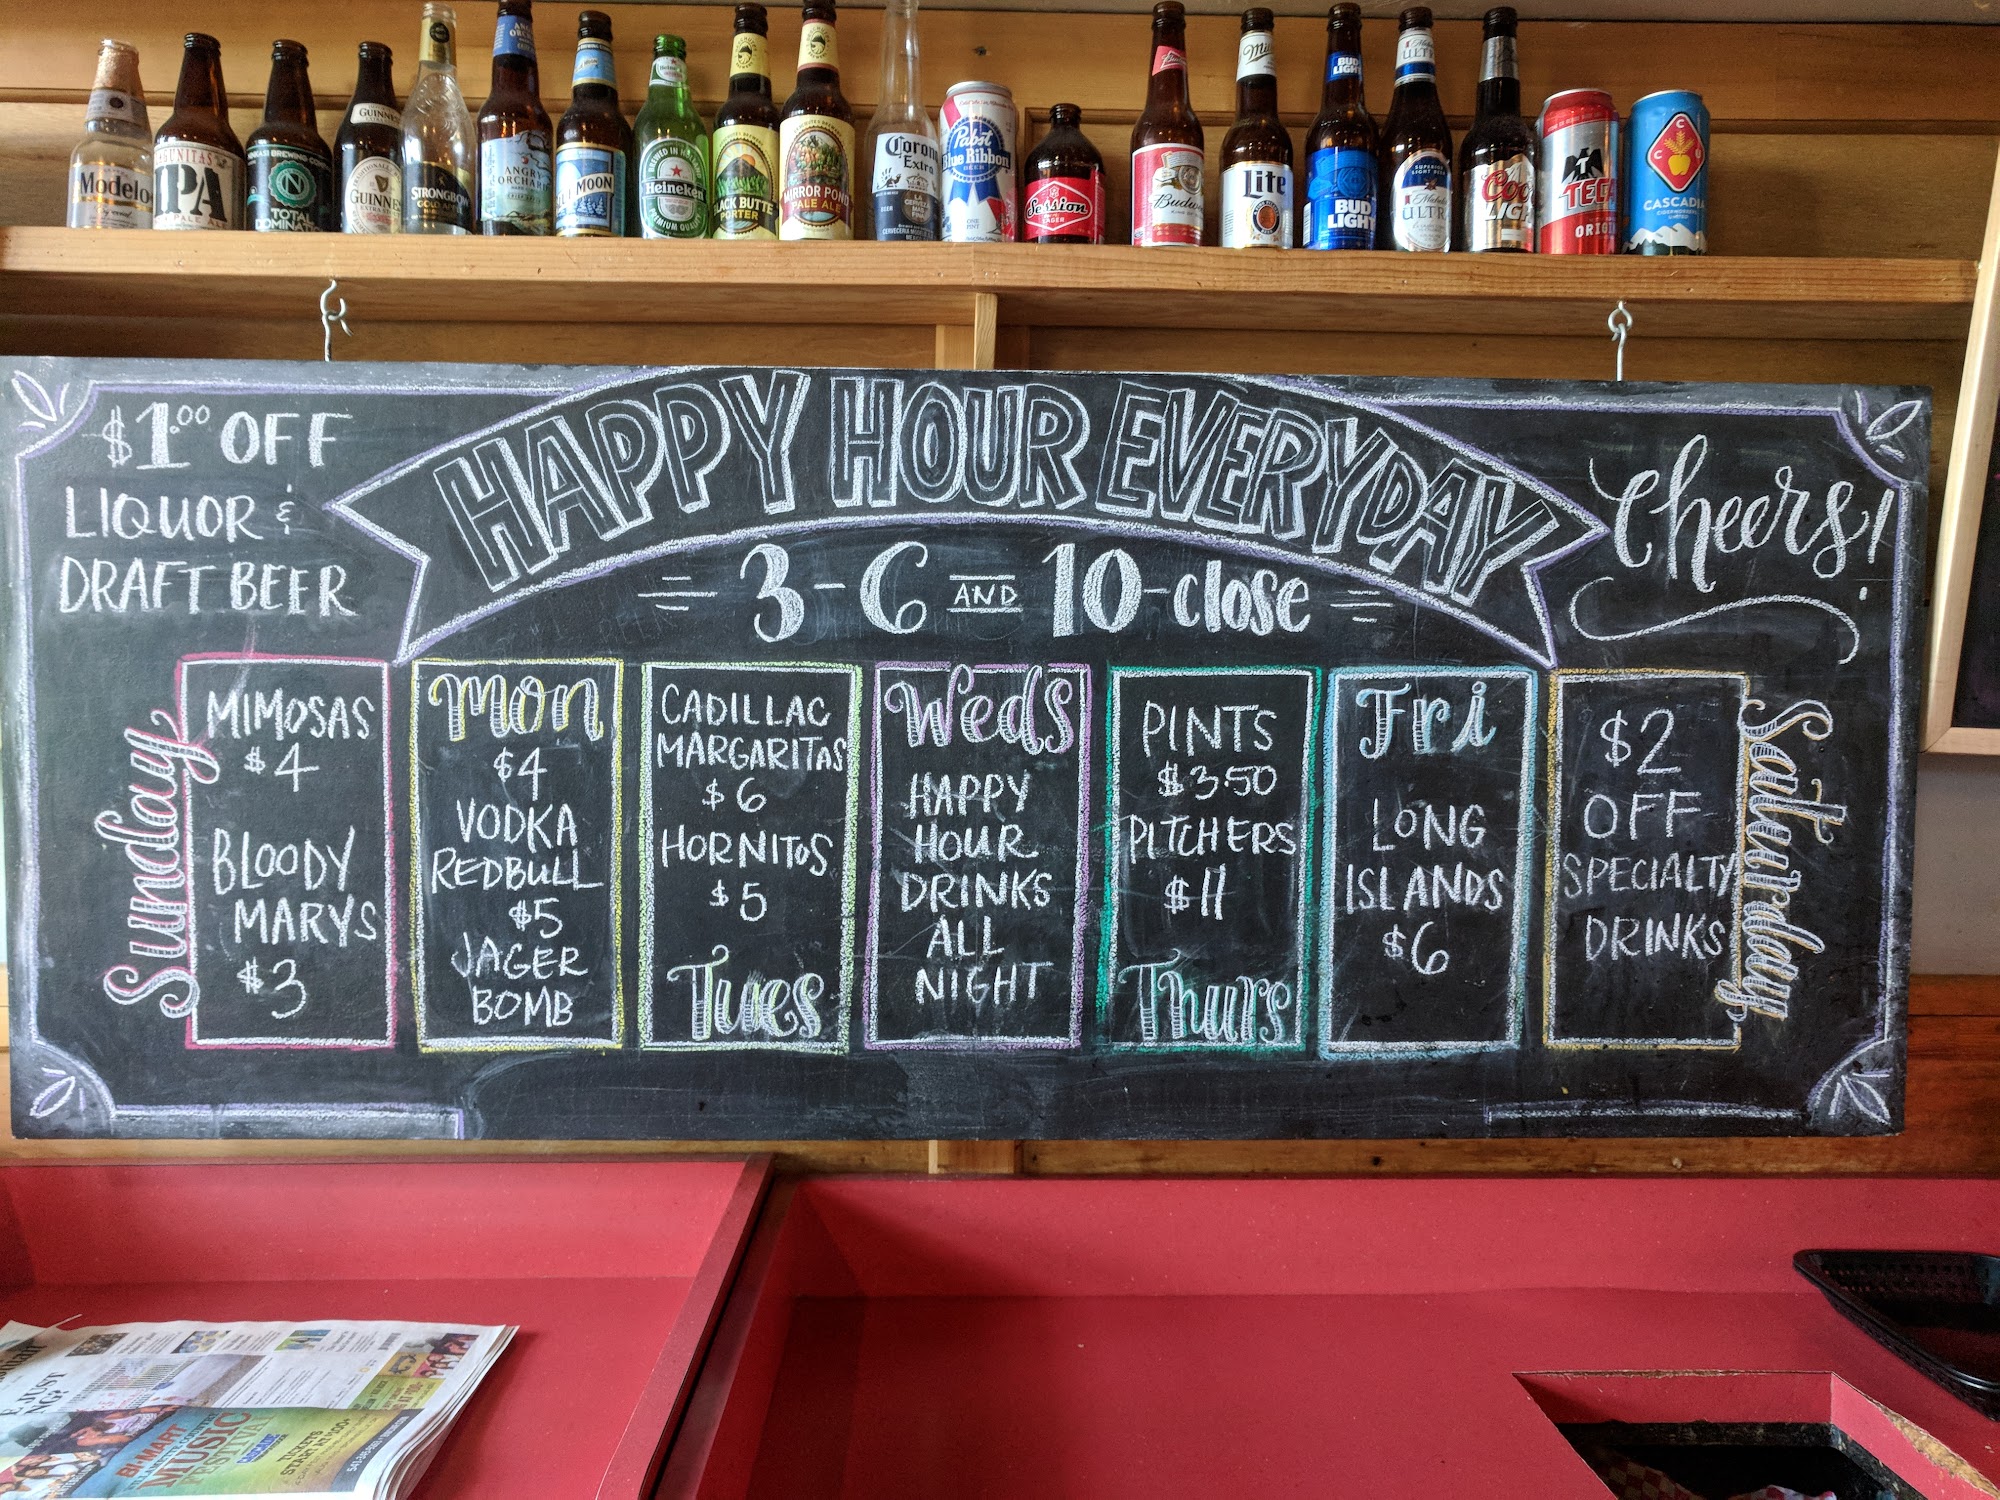 Modelo
LAGUNITAS
IPA
TOTAL
DOMINATION
GUINNESS
GUINNESS
STRONGBOW
ANGRY
ORCHARD
MOON
Heineken
BLACK BUTTE
PORTER
MIRROR POND
PALE ALE
Corona
Extra
Pabst
Blue Ribbon
Session
LAGER
Lite
BUD
LIGHT
BUD
LIGHT
ULTRA
ULTRA
Coors
LIGHT
ORIGINAL
CASCADIA
CIDERWORKERS
UNITED
$1.00 OFF
LIQUOR &
DRAFT BEER
HAPPY HOUR EVERYDAY
3-6 AND 10-close
Cheers!
Sunday
MIMOSAS
$4
BLOODY
MARYS
$3
Mon
$4
VODKA
REDBULL
$5
JAGER
BOMB
CADILLAC
MARGARITAS
$6
HORNITOS
$5
Tues
Weds
HAPPY
HOUR
DRINKS
ALL
NIGHT
PINTS
$3.50
PITCHERS
$11
Thurs
Fri
LONG
ISLANDS
$6
$2
OFF
SPECIALTY
DRINKS
Saturday
BI-MART
WILLAMETTE COUNTRY
MUSIC
FESTIVAL
TICKETS
START AT